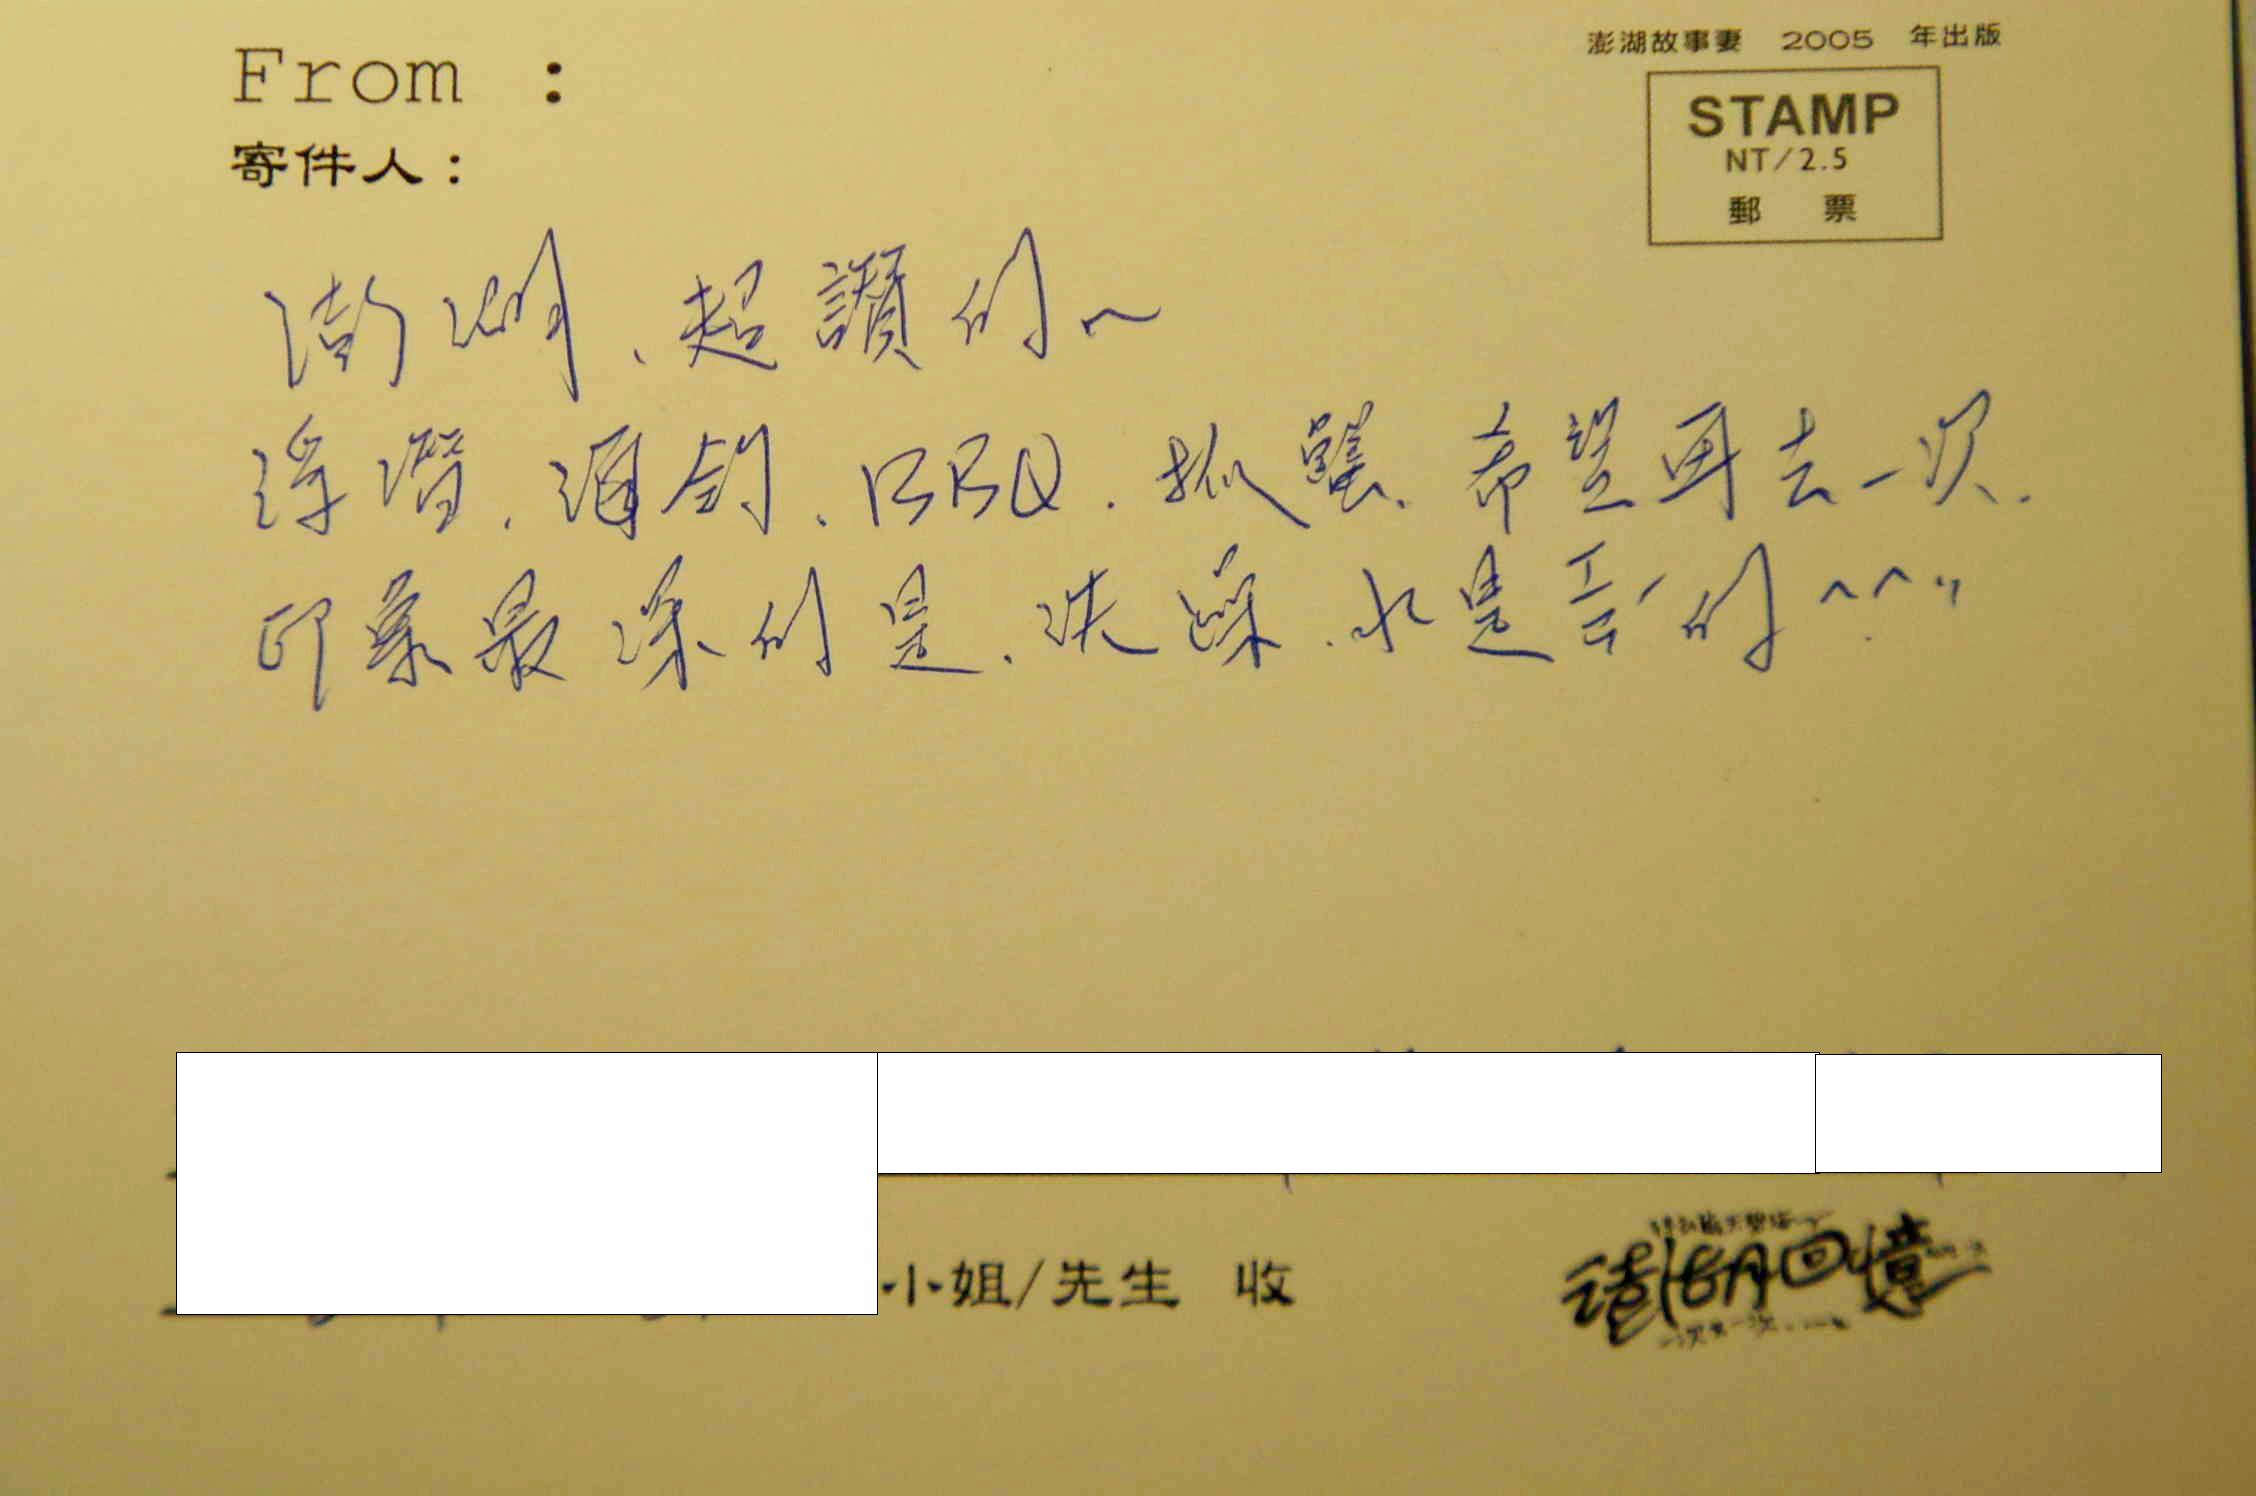 From :
寄件人:
澎湖故事妻 2005 年出版
STAMP
NT/2.5
郵 票
澎湖、超讚的~
浮潛、海釣、BBQ、抓蟹、希望再去一次.
印象最深的是、洗澡、水是 的^^"
小姐/先生 收
澎湖回憶